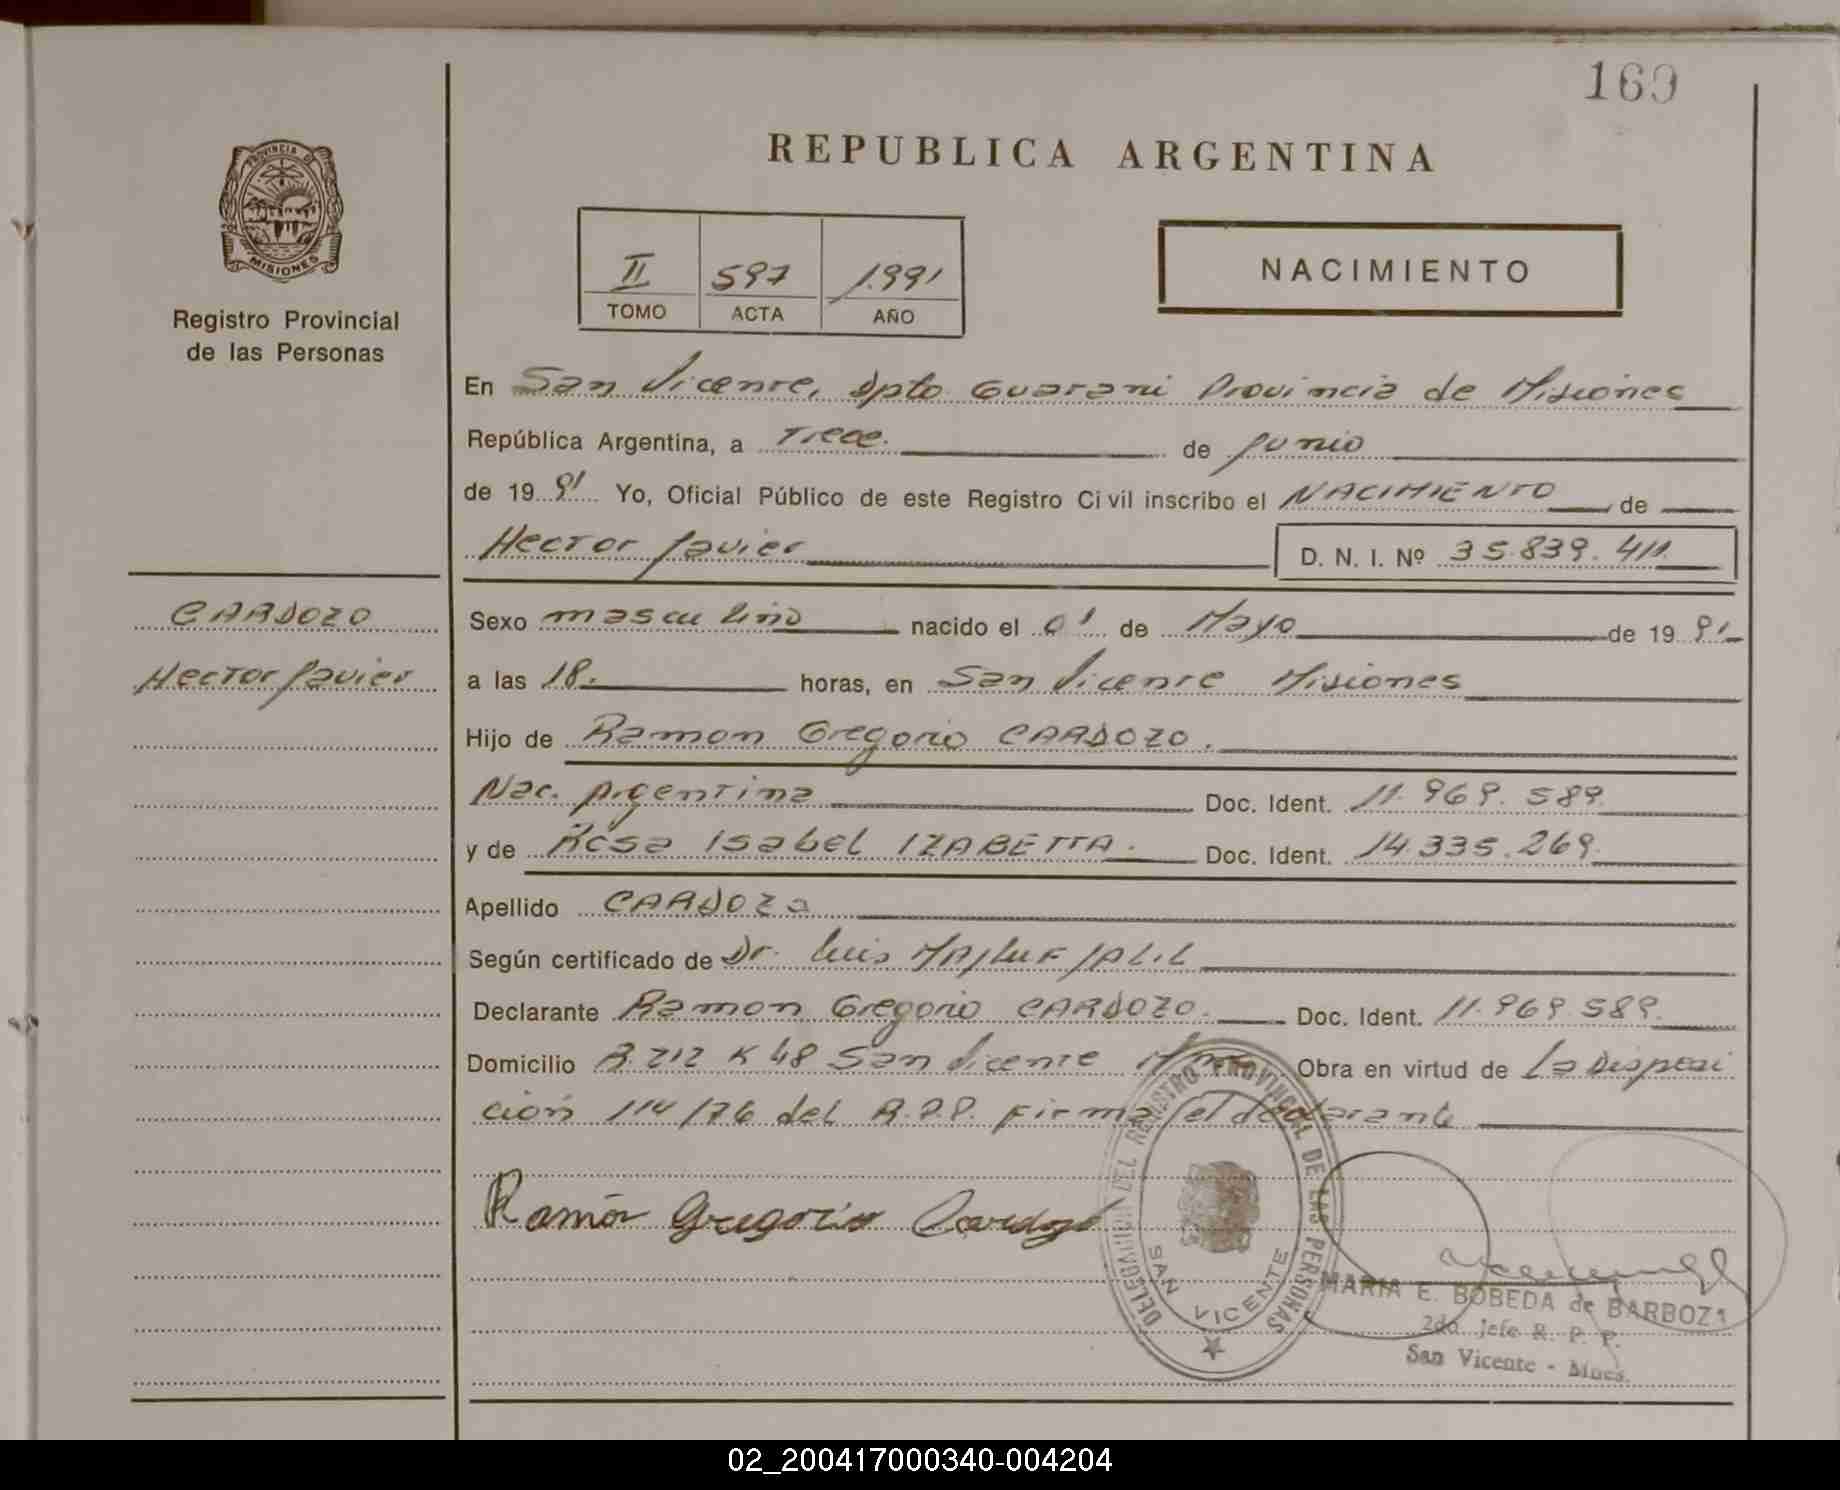 169
REPUBLICA ARGENTINA
PROVINCIA DE
MISIONES
Registro Provincial
de las Personas
II 597 1.991
TOMO ACTA AÑO
NACIMIENTO
En San Vicente, Dpto Guarani Provincia de Misiones
República Argentina, a Trece. de junio
de 19 91 Yo, Oficial Público de este Registro Civil inscribo el NACIMIENTO de
Hector Javier D. N. I. Nº 35.839.411
CARDOZO
Hector Javier
Sexo masculino nacido el 01 de Mayo de 19 91
a las 18. horas, en San Vicente Misiones
Hijo de Ramon Gregorio CARDOZO.
Nac. Argentina Doc. Ident. 11.969.589
y de Rosa Isabel IZABETTA. Doc. Ident. 14.335.269
Apellido CARDOZO
Según certificado de Dr. Luis MAJLUF JALIL
Declarante Ramon Gregorio CARDOZO. Doc. Ident. 11.969.589.
Domicilio R.212 K 48 San Vicente Mnes Obra en virtud de La Disposi
ción 114/76 del R.P.P. Firma el declarante
Ramón Gregorio Cardozo
DELEGACION DEL REGISTRO PROVINCIAL DE LAS PERSONAS
SAN VICENTE
MARIA E. BOBEDA de BARBOZA
2do. Jefe R. P. P.
San Vicente - Mnes.
02_200417000340-004204